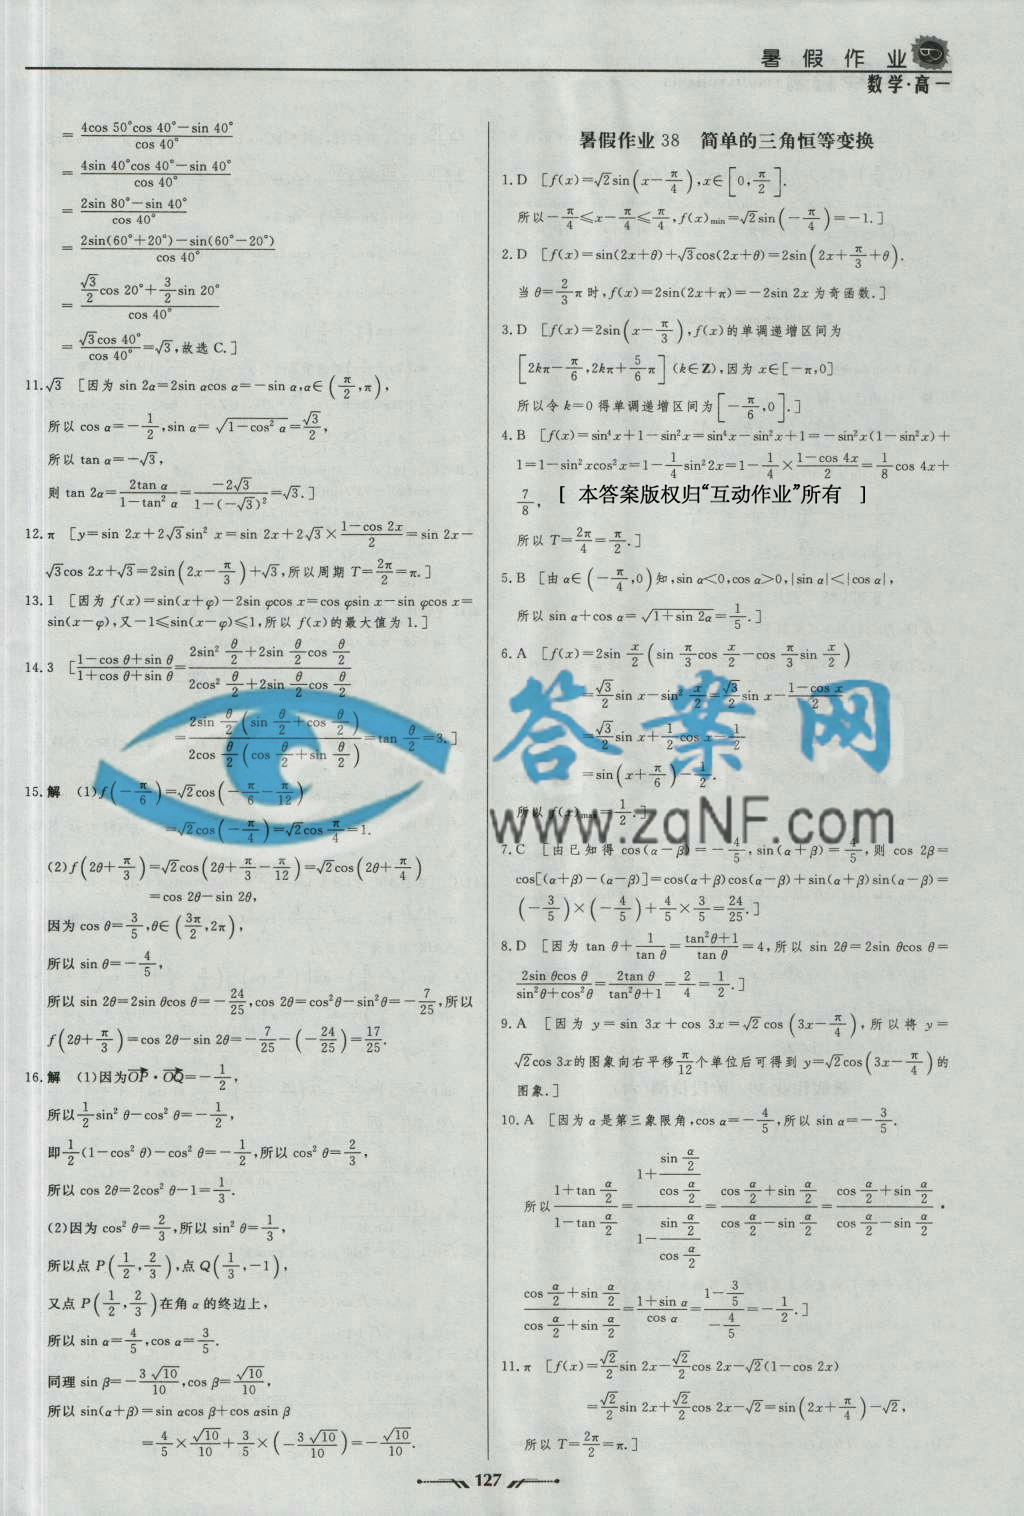 暑假作业
数学·高一
=(4cos 50°cos 40°-sin 40°)/cos 40°
=(4sin 40°cos 40°-sin 40°)/cos 40°
=(2sin 80°-sin 40°)/cos 40°
=(2sin(60°+20°)-sin(60°-20°))/cos 40°
=(√3/2 cos 20°+3/2 sin 20°)/cos 40°
=√3cos 40°/cos 40°=√3,故选 C.]
11.√3 [因为 sin 2α=2sin αcos α=-sin α,α∈(π/2,π),
所以 cos α=-1/2,sin α=√(1-cos² α)=√3/2,
所以 tan α=-√3,
则 tan 2α=2tan α/(1-tan² α)=-2√3/(1-(-√3)²)=√3.]
12.π [y=sin 2x+2√3sin² x=sin 2x+2√3×(1-cos 2x)/2=sin 2x-
√3cos 2x+√3=2sin(2x-π/3)+√3,所以周期 T=2π/2=π.]
13.1 [因为 f(x)=sin(x+φ)-2sin φcos x=cos φsin x-sin φcos x=
sin(x-φ),又-1≤sin(x-φ)≤1,所以 f(x)的最大值为 1.]
14.3 [(1-cos θ+sin θ)/(1+cos θ+sin θ)=(2sin² θ/2+2sin θ/2 cos θ/2)/(2cos² θ/2+2sin θ/2 cos θ/2)
=2sin θ/2(sin θ/2+cos θ/2)/2cos θ/2(cos θ/2+sin θ/2)=tan θ/2=3.]
15.解 (1)f(-π/6)=√2cos(-π/6-π/12)
=√2cos(-π/4)=√2cos π/4=1.
(2)f(2θ+π/3)=√2cos(2θ+π/3-π/12)=√2cos(2θ+π/4)
=cos 2θ-sin 2θ,
因为 cos θ=3/5,θ∈(3π/2,2π),
所以 sin θ=-4/5,
所以 sin 2θ=2sin θcos θ=-24/25,cos 2θ=cos²θ-sin²θ=-7/25,所以
f(2θ+π/3)=cos 2θ-sin 2θ=-7/25-(-24/25)=17/25.
16.解 (1)因为OP·OQ=-1/2,
所以1/2 sin² θ-cos² θ=-1/2,
即1/2(1-cos² θ)-cos² θ=-1/2,所以 cos² θ=2/3,
所以 cos 2θ=2cos² θ-1=1/3.
(2)因为 cos² θ=2/3,所以 sin² θ=1/3,
所以点 P(1/2,2/3),点 Q(1/3,-1),
又点 P(1/2,2/3)在角 α 的终边上,
所以 sin α=4/5,cos α=3/5.
同理 sin β=-3√10/10,cos β=√10/10,
所以 sin(α+β)=sin αcos β+cos αsin β
=4/5×√10/10+3/5×(-3√10/10)=-√10/10.
暑假作业 38 简单的三角恒等变换
1.D [f(x)=√2sin(x-π/4),x∈[0,π/2].
所以-π/4≤x-π/4≤π/4,f(x)min=√2sin(-π/4)=-1.]
2.D [f(x)=sin(2x+θ)+√3cos(2x+θ)=2sin(2x+π/3+θ).
当 θ=2/3π 时,f(x)=2sin(2x+π)=-2sin 2x 为奇函数.]
3.D [f(x)=2sin(x-π/3),f(x)的单调递增区间为
[2kπ-π/6,2kπ+5/6π](k∈Z),因为 x∈[-π,0]
所以令 k=0 得单调递增区间为[-π/6,0].]
4.B [f(x)=sin⁴x+1-sin²x=sin⁴x-sin²x+1=-sin²x(1-sin²x)+
1=1-sin²xcos²x=1-1/4 sin²2x=1-1/4×(1-cos 4x)/2=1/8 cos 4x+
7/8, [ 本答案版权归“互动作业”所有 ]
所以 T=2π/4=π/2.]
5.B [由 α∈(-π/4,0)知,sin α<0,cos α>0,|sin α|<|cos α|,
所以 sin α+cos α=√(1+sin 2α)=1/5.]
6.A [f(x)=2sin x/2(sin π/3 cos x/2-cos π/3 sin x/2)
=√3/2 sin x-sin² x/2=√3/2 sin x-(1-cos x)/2
=√3/2 sin x+1/2 cos x-1/2
=sin(x+π/6)-1/2.
所以 f(x)max=1/2.]
7.C [由已知得 cos(α-β)=-4/5,sin(α+β)=4/5,则 cos 2β=
cos[(α+β)-(α-β)]=cos(α+β)cos(α-β)+sin(α+β)sin(α-β)=
(-3/5)×(-4/5)+4/5×3/5=24/25.]
8.D [因为 tan θ+1/tan θ=(tan²θ+1)/tan θ=4,所以 sin 2θ=2sin θcos θ=
2sin θcos θ/(sin²θ+cos²θ)=2tan θ/(tan²θ+1)=2/4=1/2.]
9.A [因为 y=sin 3x+cos 3x=√2cos(3x-π/4),所以将 y=
√2cos 3x的图象向右平移π/12个单位后可得到 y=√2cos(3x-π/4)的
图象.]
10.A [因为 α 是第三象限角,cos α=-4/5,所以 sin α=-3/5.
所以(1+tan α/2)/(1-tan α/2)=(1+(sin α/2)/(cos α/2))/(1-(sin α/2)/(cos α/2))=(cos α/2+sin α/2)/(cos α/2-sin α/2)=(cos α/2+sin α/2)/(cos α/2-sin α/2)·
(cos α/2+sin α/2)/(cos α/2+sin α/2)=(1+sin α)/cos α=(1-3/5)/(-4/5)=-1/2.]
11.π [f(x)=√2/2 sin 2x-√2/2 cos 2x-√2(1-cos 2x)
=√2/2 sin 2x+√2/2 cos 2x-√2=sin(2x+π/4)-√2,
所以 T=2π/2=π.]
127
答案网
www.zqNF.com